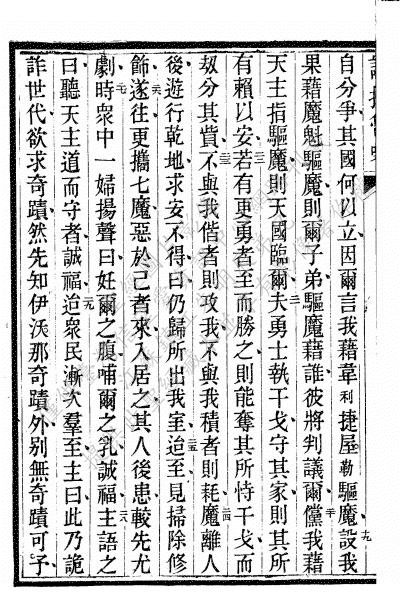 自分爭其國何以立因爾言我藉韋利捷屋勒驅魔設我
果藉魔魁驅魔則爾子弟驅魔藉誰彼將判議爾儻我藉
天主指驅魔則天國臨爾夫勇士執干戈守其家則其所
有賴以安若有更勇者至而勝之則能奪其所恃干戈而
刼分其貲不與我偕者則攻我不與我積者則耗魔離人
後遊行乾地求安不得曰仍歸所出我室迨至見掃除修
飾遂往更攜七魔惡於己者來入居之其人後患較先尤
劇時衆中一婦揚聲曰妊爾之腹哺爾之乳誠福主語之
曰聽天主道而守者誠福迨衆民漸次羣至主曰此乃詭
詐世代欲求奇蹟然先知伊沃那奇蹟外別無奇蹟可予
十九
二十
二一
二二
二三
二四
二五
二六
二七
二八
二九